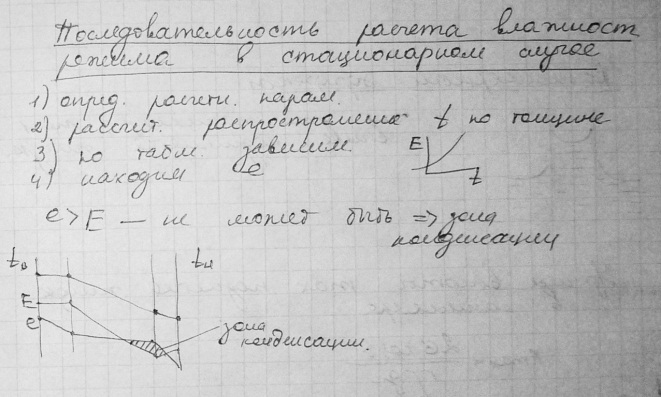 Последовательность расчета влажност
режима в стационарном случае
1) опред. расчетн. парам.
2) рассчит. распространение t по толщине
3) по табл. зависим.
4) находим e
E
t
e > E — не может быть => зона
конденсации
tв
tн
E
e
зона
конденсации.